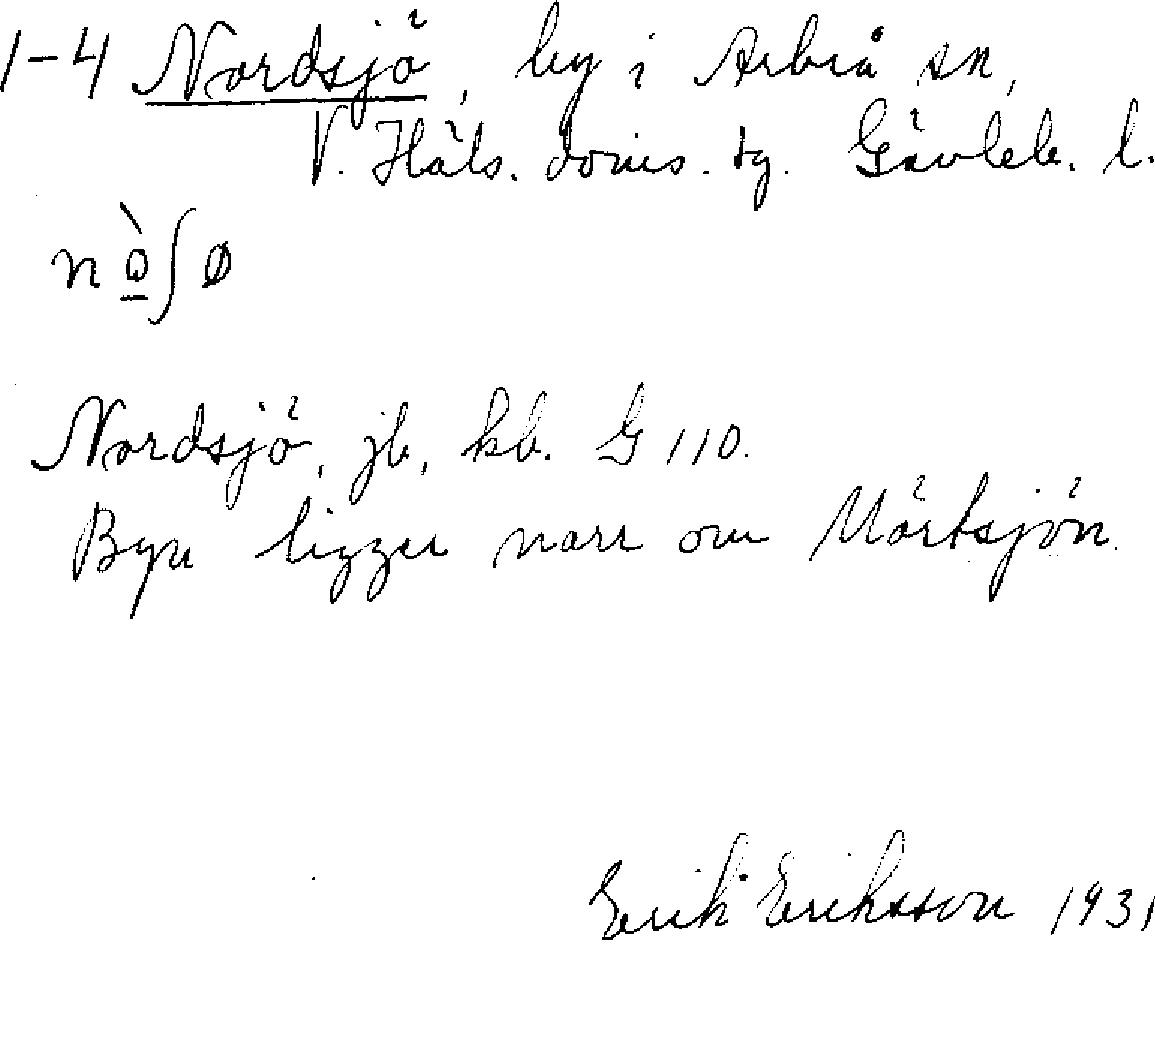 1-4 Nordsjö, by i Arbrå sn,
V. Häls. doms. tg. Gävleb. l.
nò̱ʃø
Nordsjö, jb, kb. G 110.
Byn ligger norr om Mörtsjön.
Erik Eriksson 1931